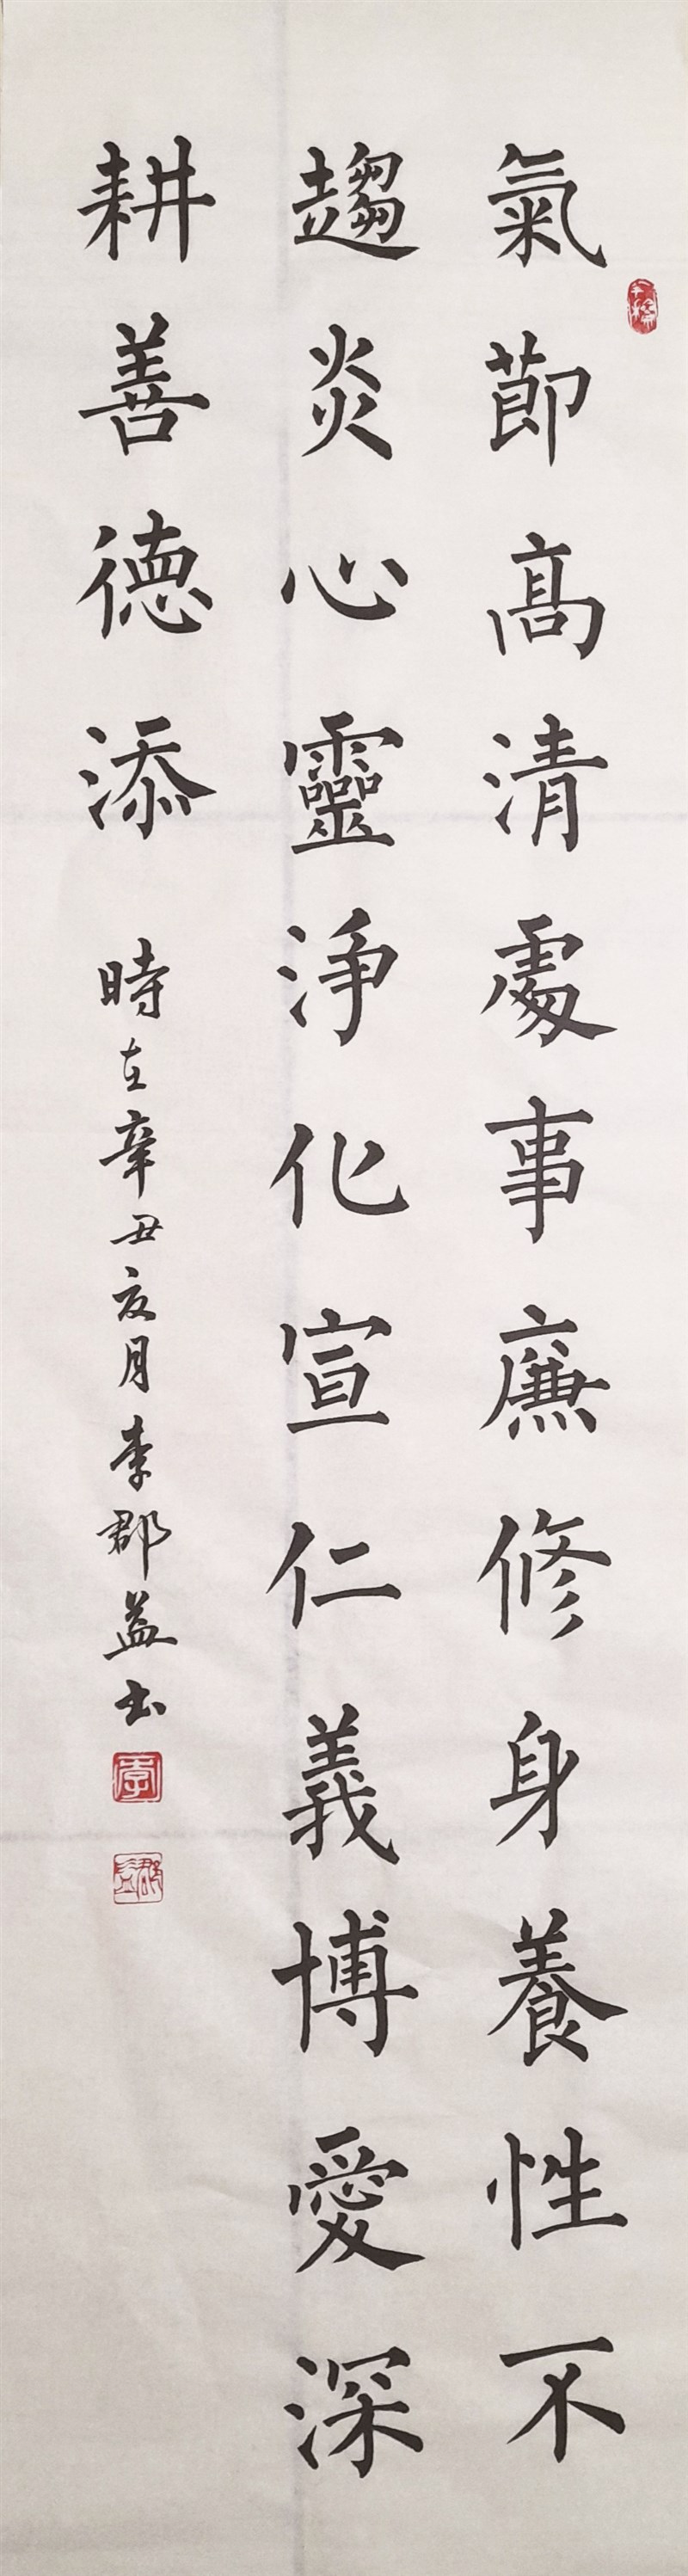 氣節高清處事廉修身養性不
趨炎心靈淨化宣仁義博愛深
耕善德添
時在辛丑亥月李郡益書
李
郡益